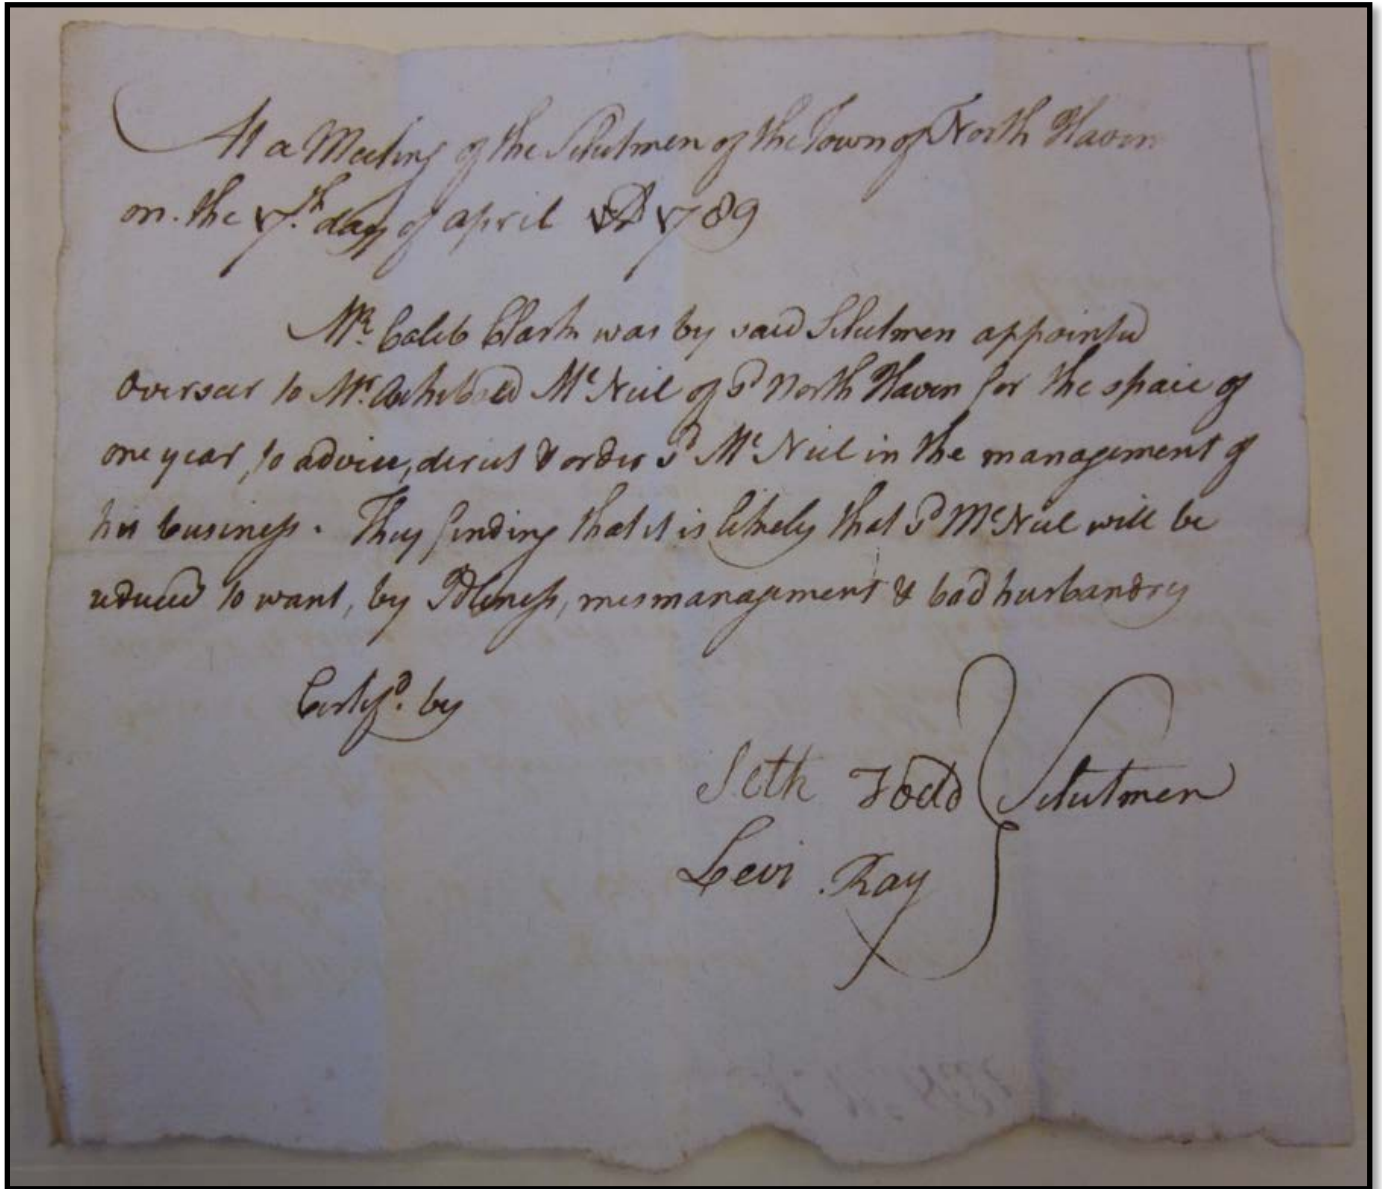 At a Meeting of the Selectmen of the Town of North Haven
on the 7th day of april AD 1789
Mr. Caleb Clark was by said Selectmen appointed
Overseer to Mr. Archibald Mc Neil of Sd North Haven for the space of
one year, to advise, direct & order Sd Mc Neil in the management of
his business. They finding that it is likely that Sd Mc Neil will be
reduced to want, by Idleness, mismanagement & bad husbandry
Certifd. by
Seth Todd Selectmen
Levi Ray